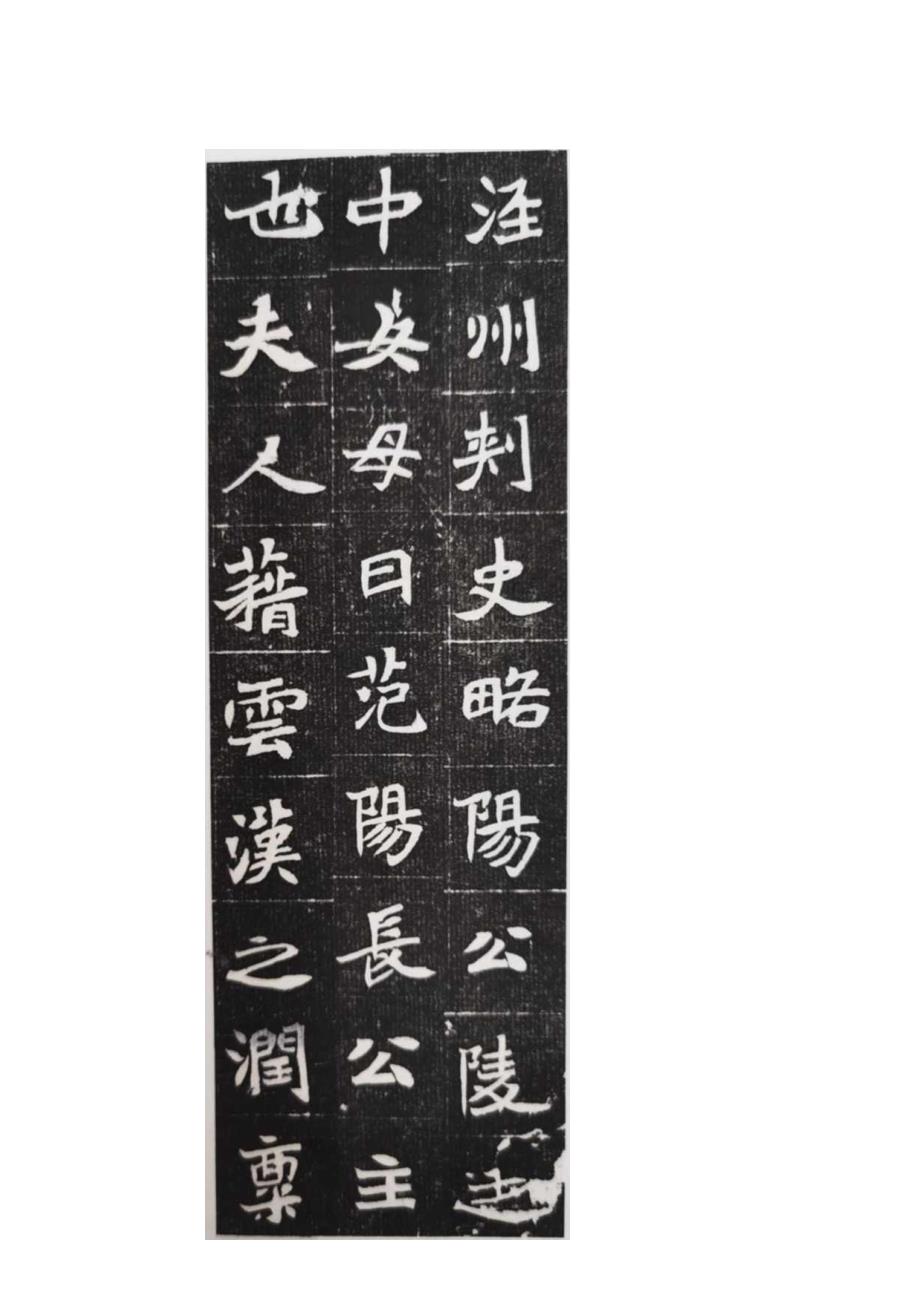 涇州刾史略陽公陵
中女母曰范陽長公主
也夫人藉雲漢之潤稟